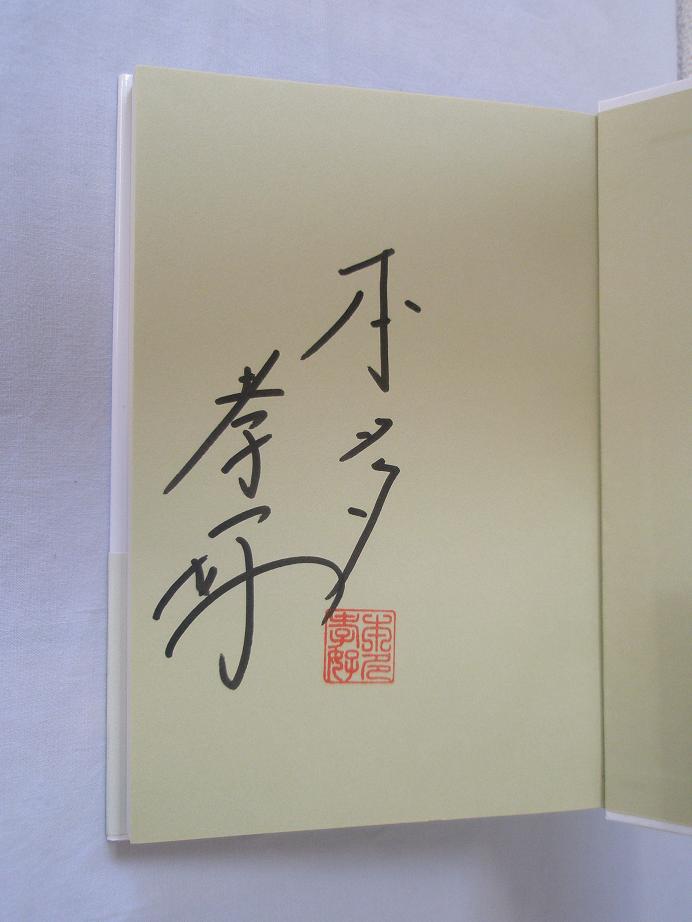 本多
孝好
本多
孝好